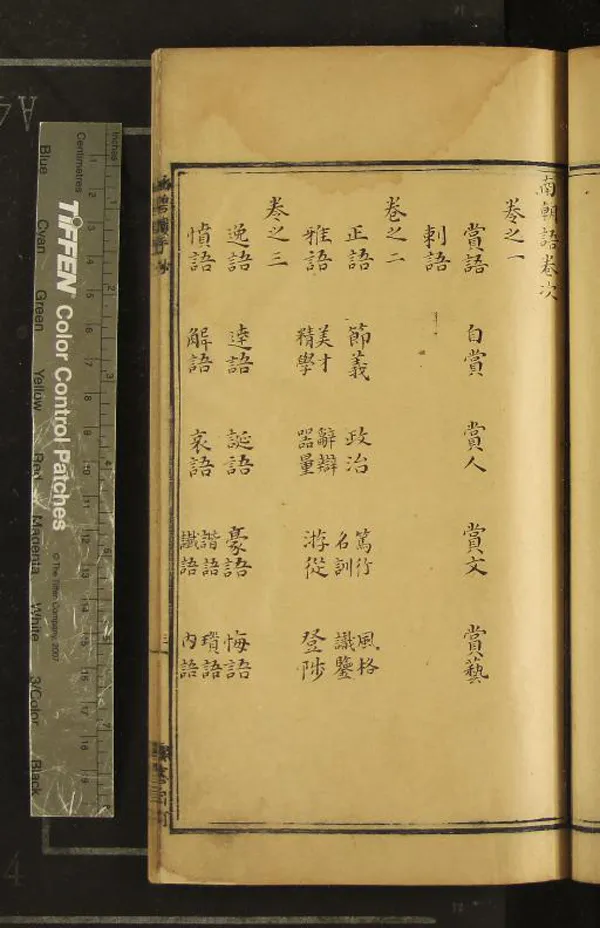 南朝語卷次
卷之一
賞語 自賞 賞人 賞文 賞藝
刺語
卷之二
正語 節義 政治 篤行 名訓 風格 識鑒
雅語 美才 精學 辭辯 器量 游從 登陟
卷之三
逸語 達語 誕語 豪語 悔語
憤語 解語 哀語 諧語 讖語 瓆語 內語
三
Inches
Centimetres
TIFFEN Color Control Patches
© The Tiffen Company, 2007
Blue
Cyan
Green
Yellow
Red
Magenta
White
3/Color
Black